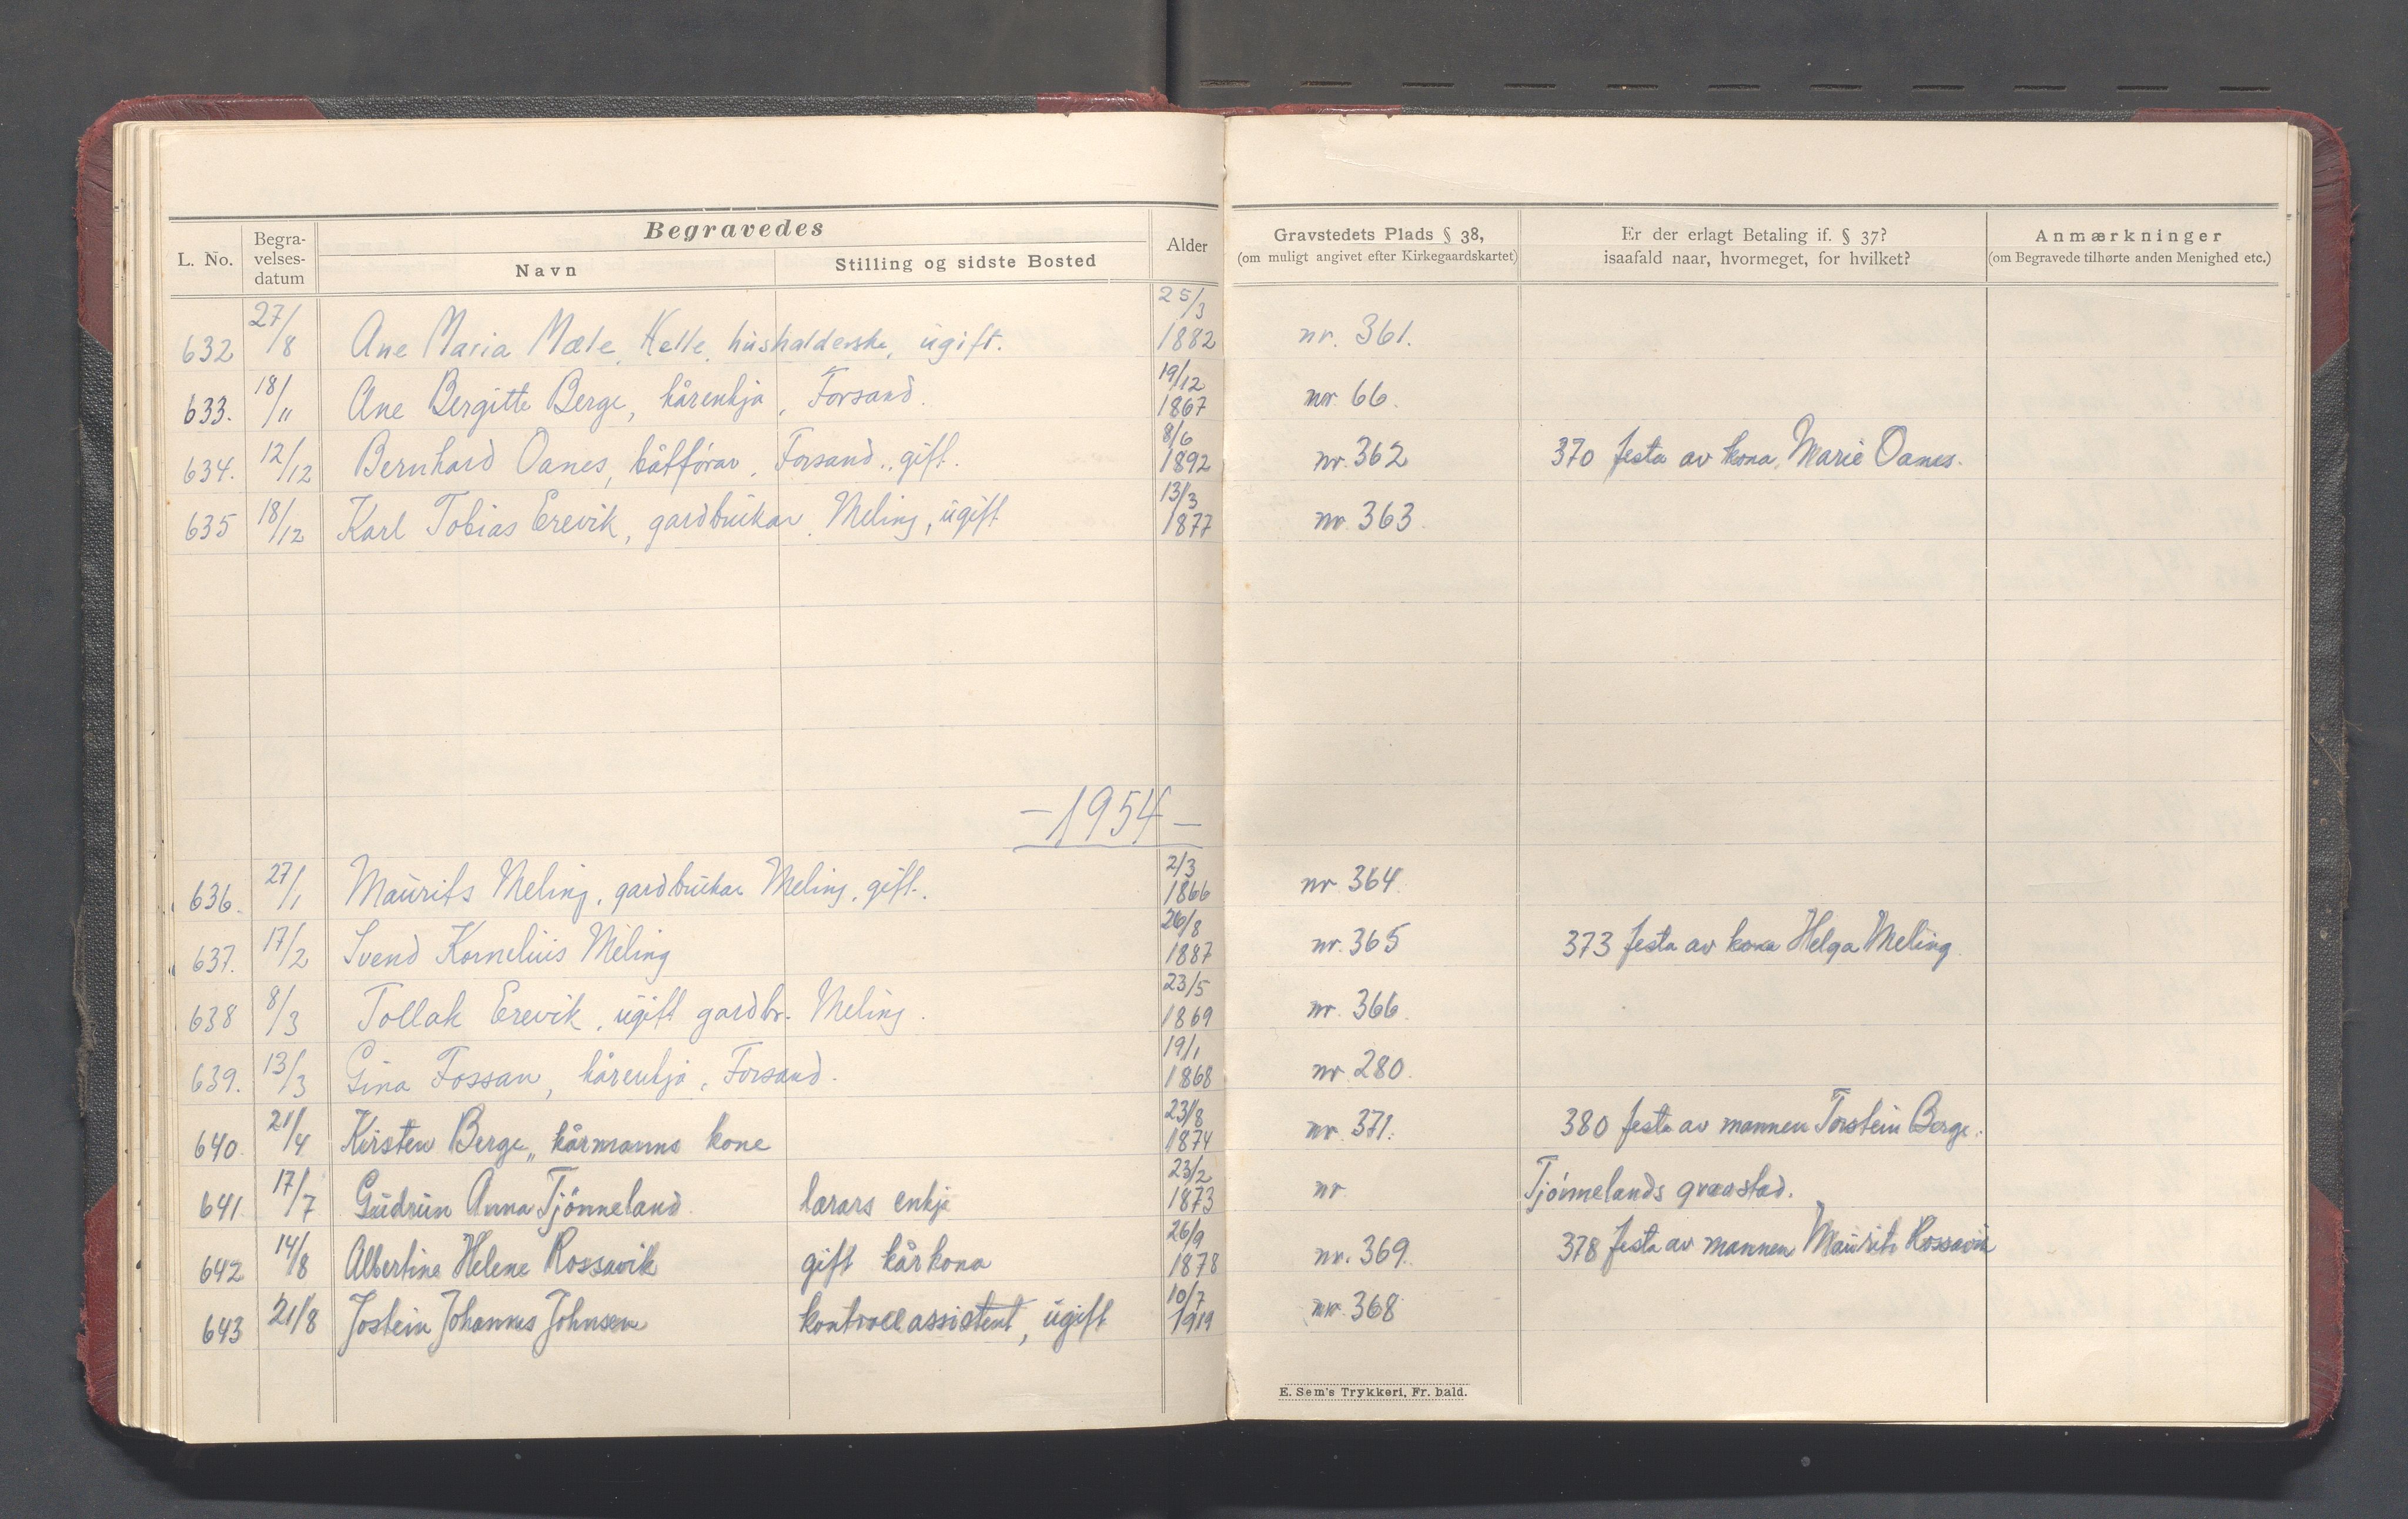 Begravedes
L. No. Begravelsesdatum Navn Stilling og sidste Bosted Alder Gravstedets Plads § 38, (om muligt angivet efter Kirkegaardskartet) Er der erlagt Betaling if. § 37? isaafald naar, hvormeget, for hvilket? Anmærkninger (om Begravede tilhørte anden Menighed etc.)
632 27/8 Ane Maria Mæle, Helle, hushalderske, ugift. 25/3 1882 nr. 361.
633. 18/11 Ane Bergitte Berge, kårenkja, Forsand. 19/12 1867 nr. 66.
634. 12/12 Bernhard Oanes, båtførar, Forsand, gift. 8/6 1892 nr. 362 370 festa av kona Marie Oanes.
635 18/12 Karl Tobias Erevik, gardbrukar, Meling, ugift 13/3 1877 nr. 363
- 1954 -
636. 27/1 Maurits Meling, gardbrukar Meling, gift. 2/3 1866 nr. 364.
637. 17/2 Svend Kornelius Meling 26/8 1887 nr. 365 373 festa av kona Helga Meling.
638 8/3 Tollak Erevik, ugift gardbr. Meling. 23/5 1869 nr. 366.
639. 13/3 Gina Fossan, kårenkja, Forsand. 19/1 1868 nr. 280.
640. 21/4 Kirsten Berge,, kårmanns kone 23/8 1874 nr. 371. 380 festa av mannen Torstein Berge.
641. 17/7 Gudrun Anna Tjönneland. lærars enkje 23/2 1873 nr. Tjönnelands gravstad.
642 14/8 Albertine Helene Rossavik gift kårkona 26/9 1878 nr. 369. 378 festa av mannen Maurits Rossavik
643 21/8 Jostein Johannes Johnsen kontrollassistent, ugift 10/7 1919 nr. 368
E. Sem's Trykkeri, Fr. hald.